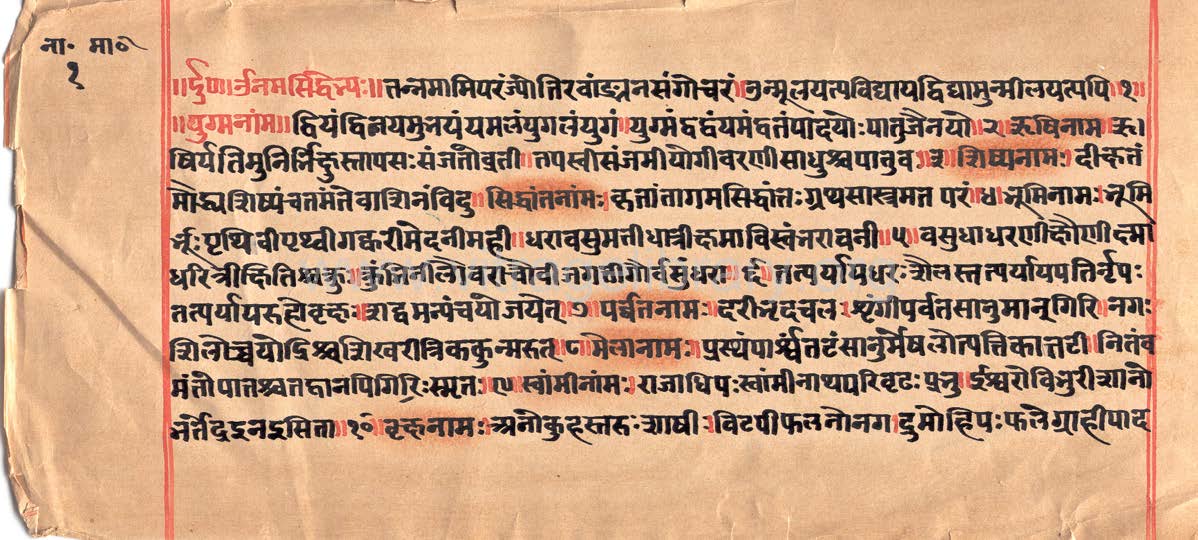 ना॰ मा॰
१
॥र्द॥ ॐनमसिद्धेभ्यः॥ तन्नमामिपरंज्योतिरवांङ्मनसगोचरं।उन्मूलयत्यविद्यायद्विद्यामुन्मीलयत्यपि॥१॥
॥युग्मनांम॥ द्वियंद्वितयमुभयंयमलंयुगलंयुगं।युग्मंद्वद्वंयमंद्वतंपादयोःपातुजैनयोः॥२॥ऋषिनाम॥ऋ।
षिर्यतिमुनिर्भिक्षुस्तापसःसंजतोव्रती।तपस्वीसंजमीयोगीवरणीसाधुश्चपातुव॥३॥शिष्यनामः॥दीक्षतं
मौढ्यशिष्यंचतमंतेवाशिनंविदु॥सिद्धांतनांमः॥कृतांतागमसिद्धांतःग्रथसास्त्रमत परं॥४॥भूमिनामः॥भूमि
र्भूःपृथिवीपृथ्वीगह्वरीमेदनीमही॥धरावसुमतीधात्रीक्ष्माविस्वंभरावनी॥५॥वसुधाधरणीक्षौणीक्ष्मा
धरित्रीक्षितिश्चकुः।कुंभिनीलौवराचोर्वीजगतीगौर्वसुंधरा॥६॥तत्पर्यायधरःशैलस्तत्पर्यायपतिर्नृपः
तत्पर्यायरुहोवृक्षः।शद्वमन्यंचयोजयेत्॥७॥पर्व्वतनामः॥दरीभृदचलःशृंगीपर्वतसानुमान्गिरि।नगः
शिलोच्चयोद्रिश्चशिखरीत्रिककुन्मरुत्॥८॥मैलानामः॥प्रस्थंपार्श्वंतटंसानुर्मेषलोत्पत्तिकातटी।नितंब
मंतोपातश्चतद्वानपिगिरिःस्मृतः॥९॥स्वांमीनांमः॥राजाधिपःस्वांमीनाथपरिवृटःप्रभु।ईश्वरोविभुरीशानो
भर्तेंद्रइनइसिता॥१०॥वृक्षनामः॥अनोकुहस्तरुःशाषी।विटपीफलनोनग।द्रुमोंह्रिपःफलेग्राहीपाद